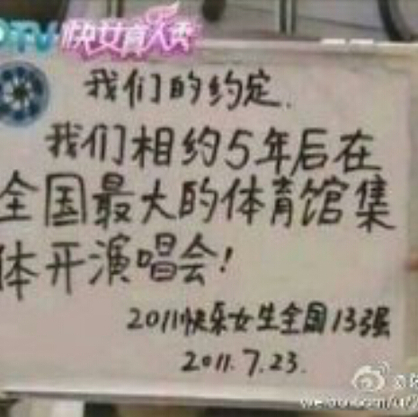 PPTV快女真人秀
我们的约定.
我们相约5年后在
全国最大的体育馆集
体开演唱会!
2011快乐女生全国13强
2011.7.23.